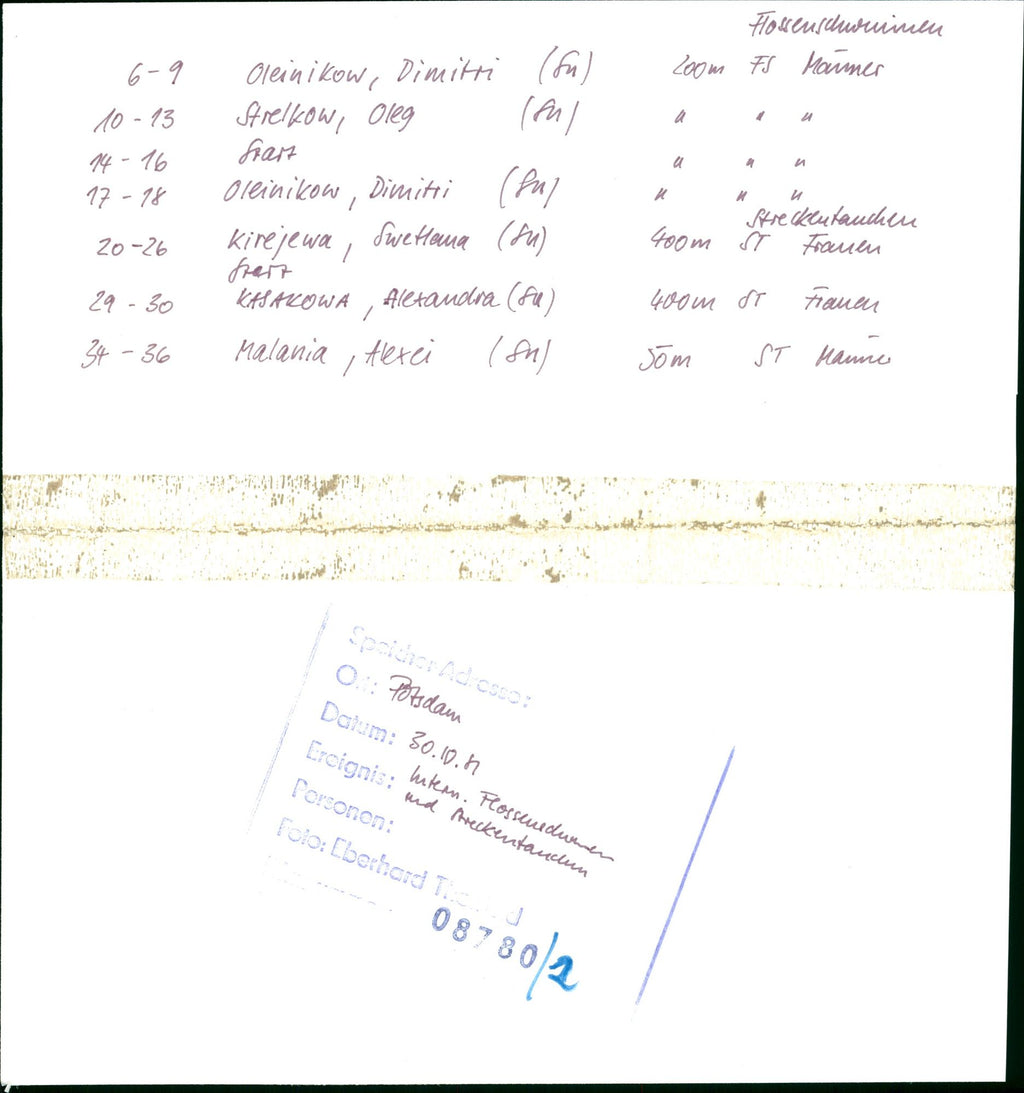 Flossenschwimmen
6-9 Oleinikow, Dimitri (Su) 200m FS Männer
10-13 Strelkow, Oleg (Su) " " "
14-16 Start " " "
17-18 Oleinikow, Dimitri (Su) " " "
Streckentauchen
20-26 Kirejewa, Swetlana (Su) 400m ST Frauen
Start
29-30 KASAKOWA, Alexandra (Su) 400m ST Frauen
34-36 Malania, Alexei (Su) 50m ST Männer
Speicher-Adresse:
Ort: Potsdam
Datum: 30.10.81
Ereignis: Intern. Flossenschwimmen
und Streckentauchen
Personen:
Foto: Eberhard
08780/2